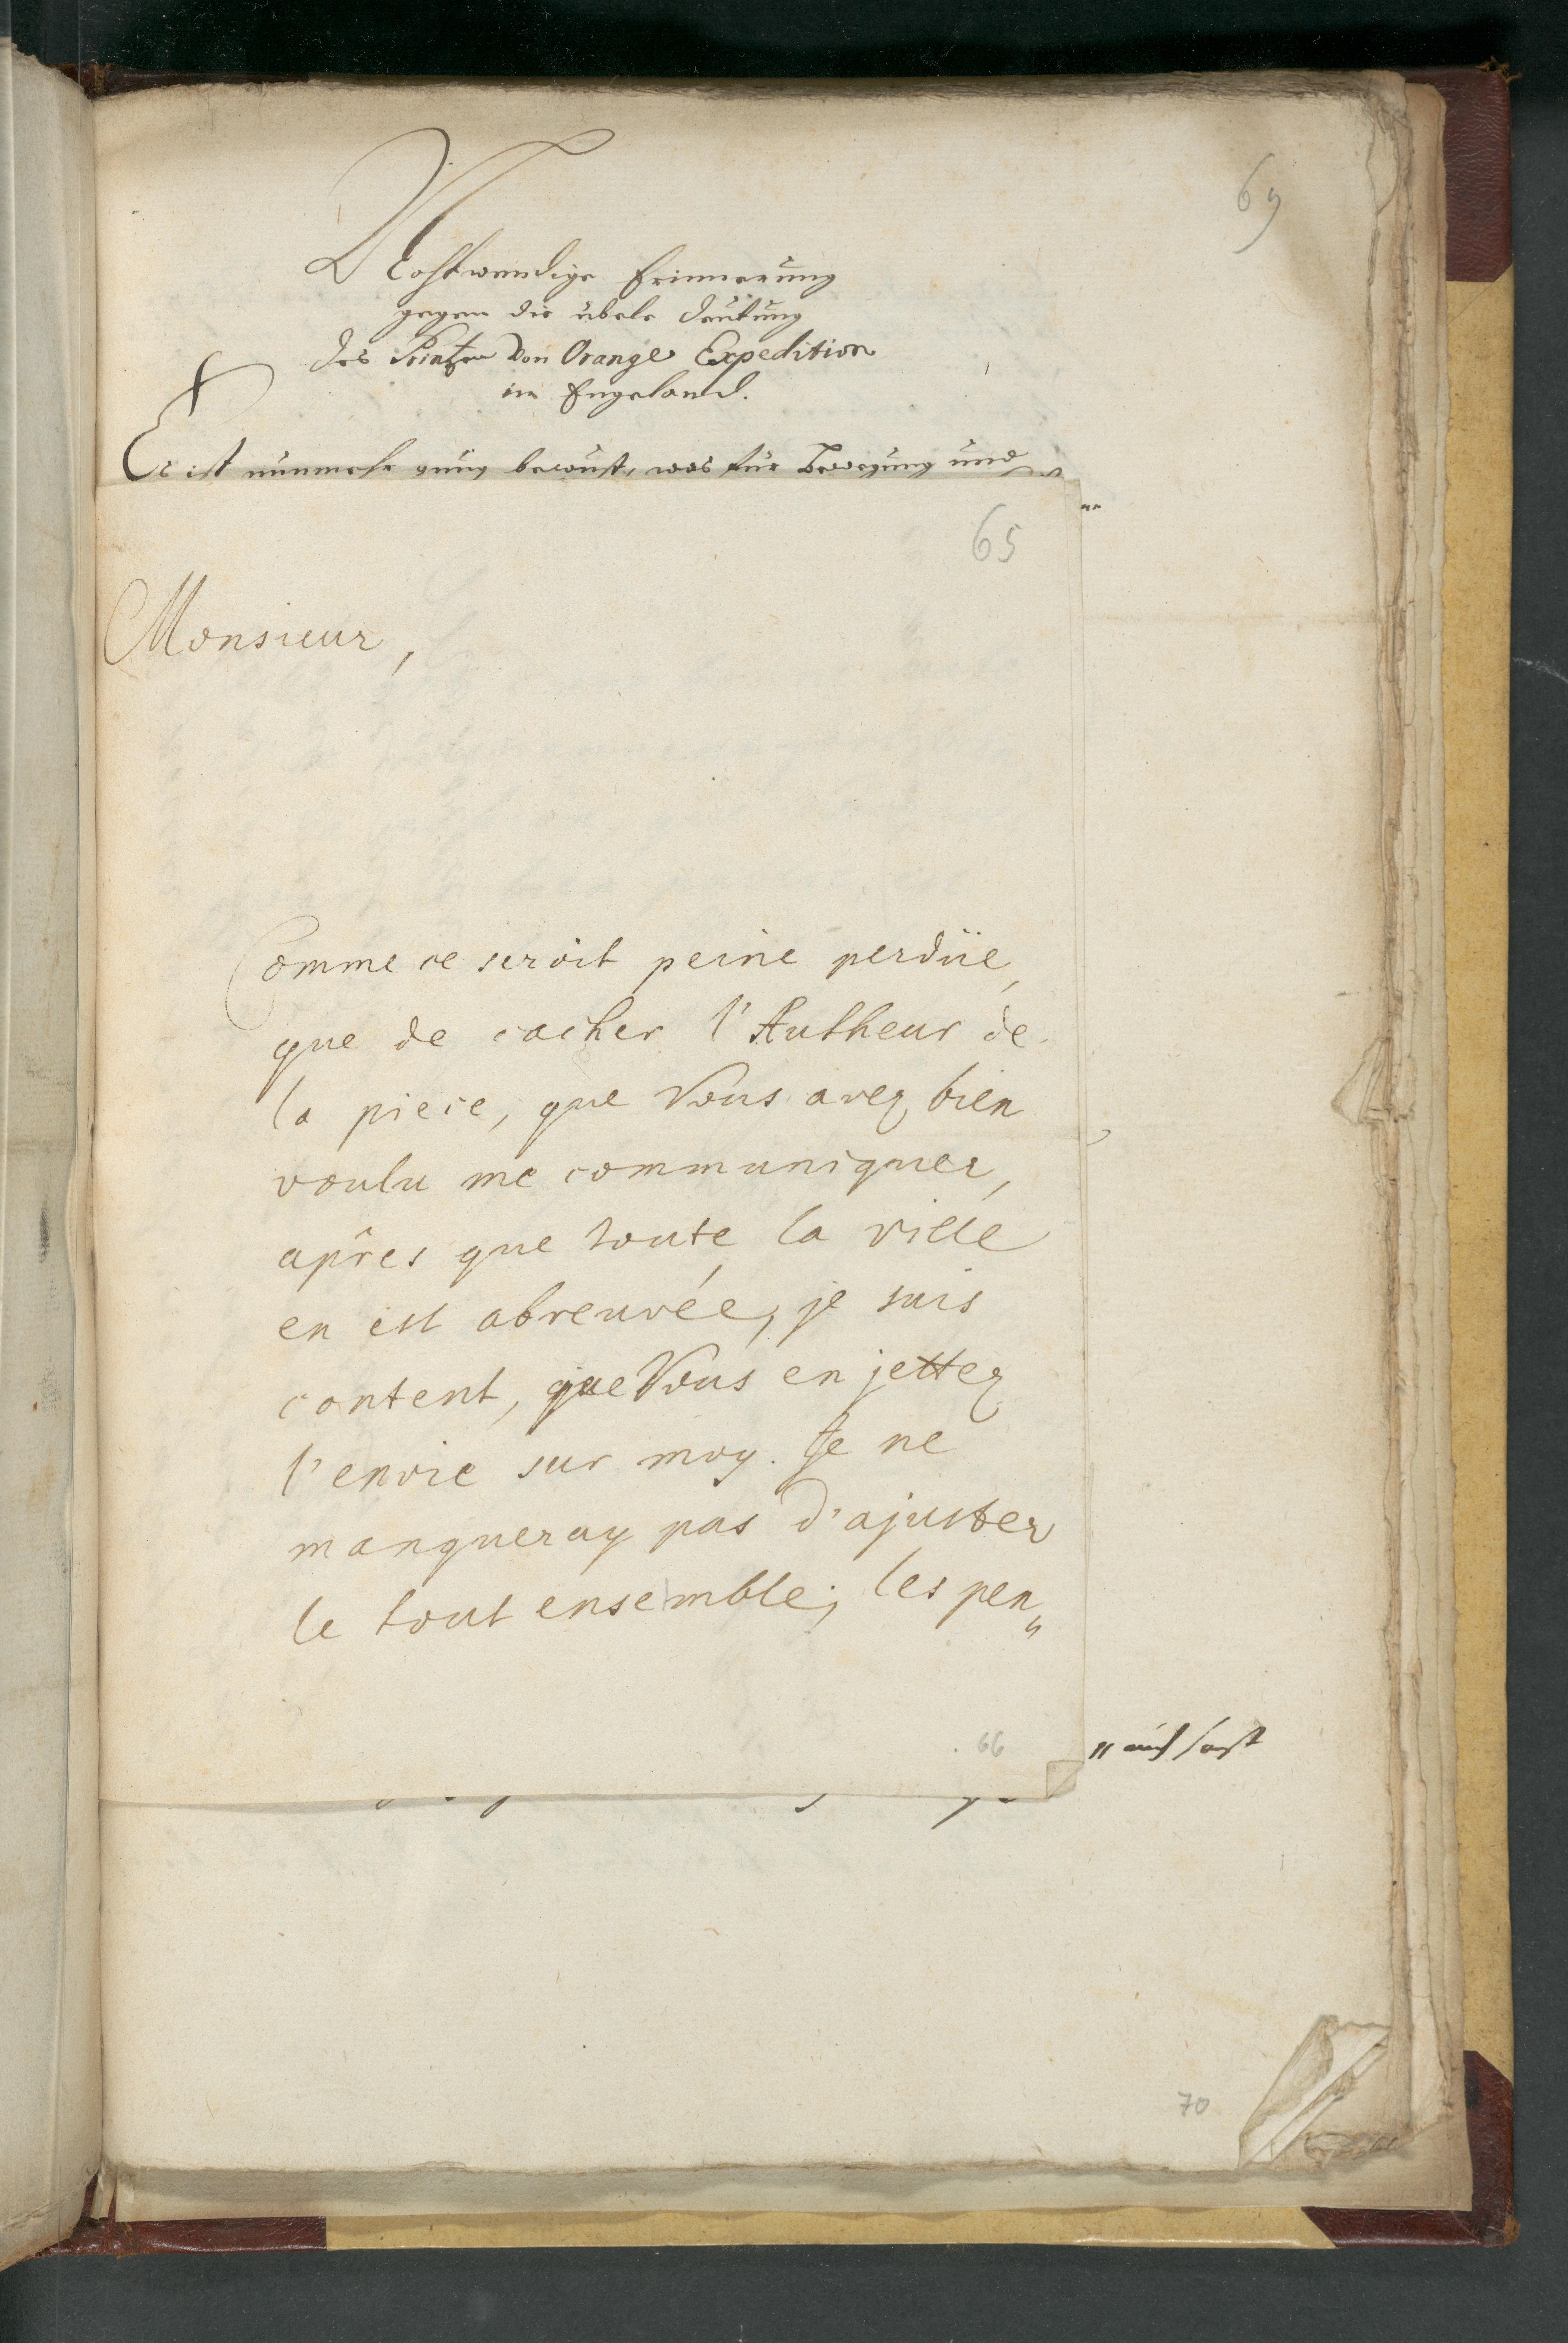 69
Nohtwendige Erinnerung
gegen die übele deutung
des Printzen Von Orange Expedition
in Engeland.
Es ist nunmehr gnug bewust, was für Bewegung und
65
Monsieur,
Comme ce seroit peine perdüe,
que de cacher l'Autheur de
la piece, que Vous avez bien
voulu me communiquer,
aprês que toute la ville
en est abreuvée, je suis
content, que Vous en jettez
l'envie sur moy. Je ne
manqueray pas d'ajuster
le tout ensemble; les pen„
66
70